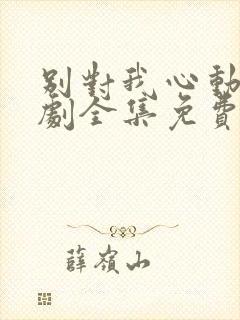 别對我心動
劇全集免費
薛嶺山